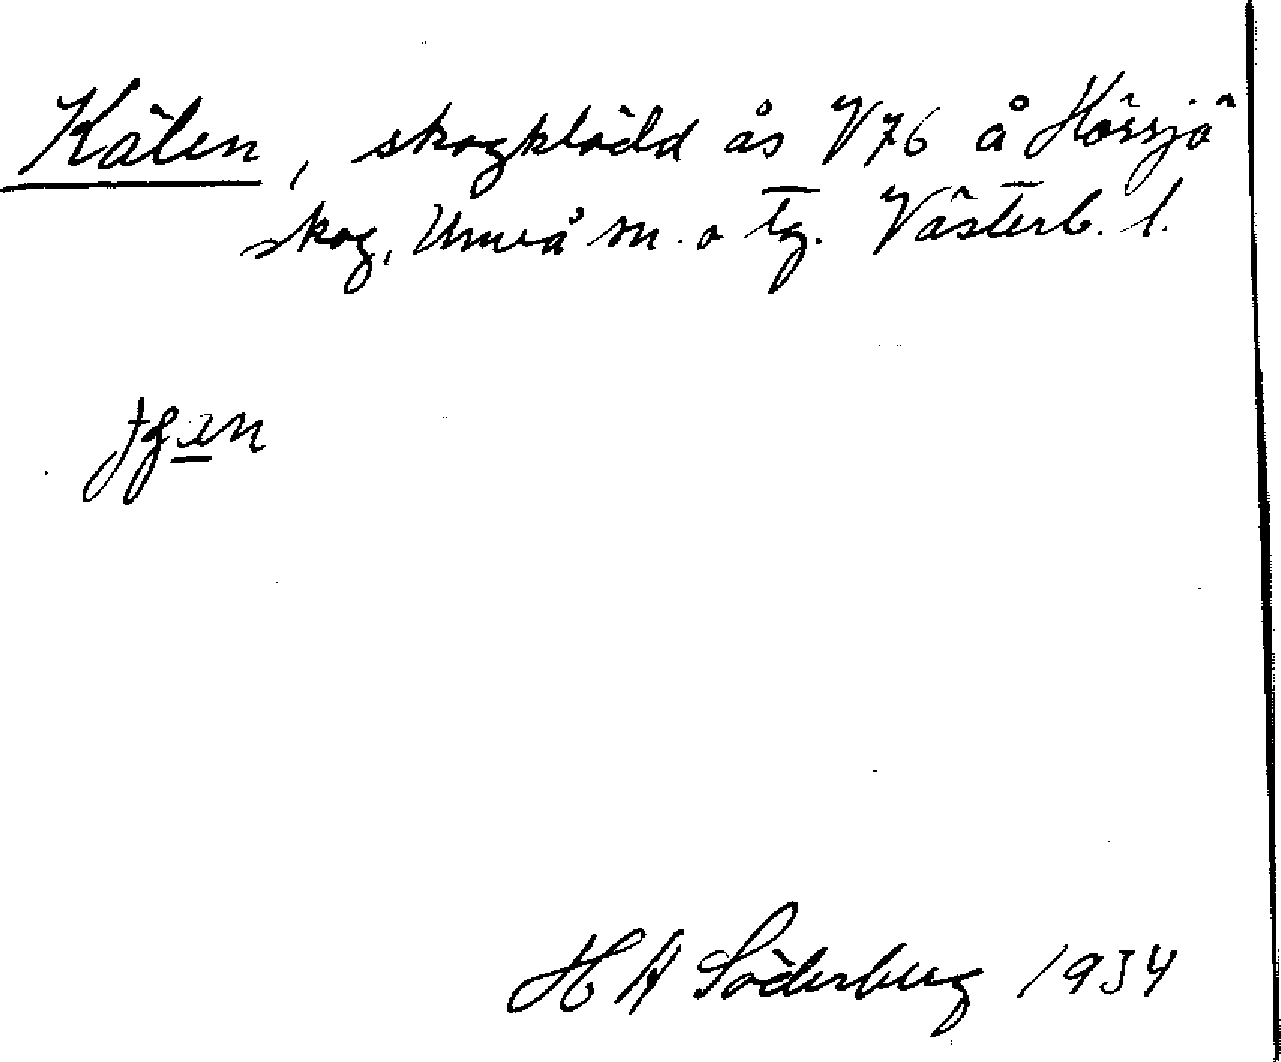 Kälen, skogklädd ås V76 å Hössjö
skog, Umeå sn. o tg. Västerb. l.
HA Söderberg 1934